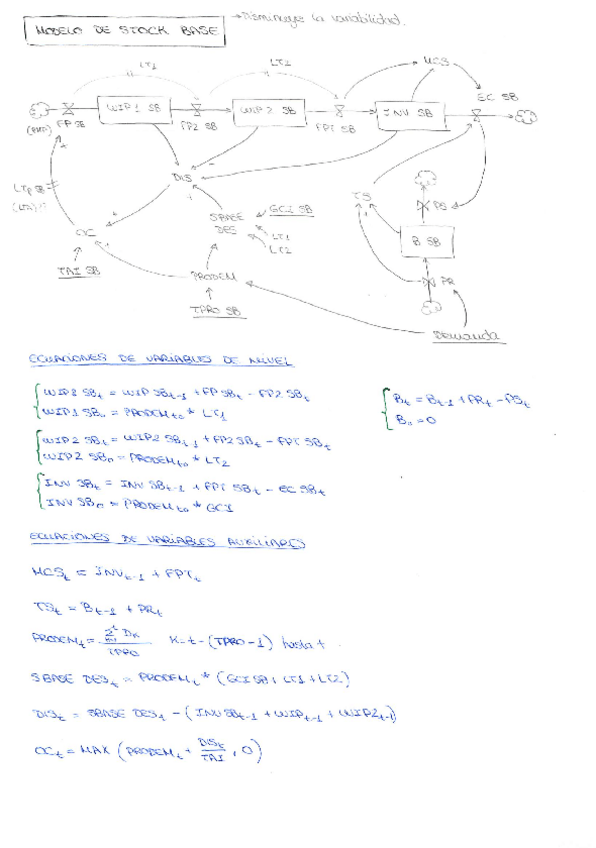 → Disminuye la variabilidad.
MODELO DE STOCK BASE
LT1
LT2
MCS
EC SB
WIP1 SB
WIP2 SB
INV SB
FP SB
FP2 SB
FPT SB
DIS
TS
PS
B SB
PR
SBASE
DES
GCI SB
LT1
LT2
OC
TAI SB
PRODEM
TPRO SB
Demanda
ECUACIONES DE VARIABLES DE NIVEL
WIP1 SBₜ = WIP SBₜ₋₁ + FP SBₜ - FP2 SBₜ
WIP1 SB₀ = PRODEMₜ₀ * LT1
Bₜ = Bₜ₋₁ + PRₜ - PSₜ
B₀ = 0
WIP2 SBₜ = WIP2 SBₜ₋₁ + FP2 SBₜ - FPT SBₜ
WIP2 SB₀ = PRODEMₜ₀ * LT2
INV SBₜ = INV SBₜ₋₁ + FPT SBₜ - EC SBₜ
INV SB₀ = PRODEMₜ₀ * GCI
ECUACIONES DE VARIABLES AUXILIARES
MCSₜ = INVₜ₋₁ + FPTₜ
TSₜ = Bₜ₋₁ + PRₜ
PRODEMₜ = Σ Dₖ / TPRO K=t-(TPRO-1) hasta t
SBASE DESₜ = PRODEMₜ * (GCI SB + LT1 + LT2)
DISₜ = SBASE DESₜ - (INV SBₜ₋₁ + WIPₜ₋₁ + WIP2ₜ₋₁)
OCₜ = MAX (PRODEMₜ + DISₜ / TAI, 0)